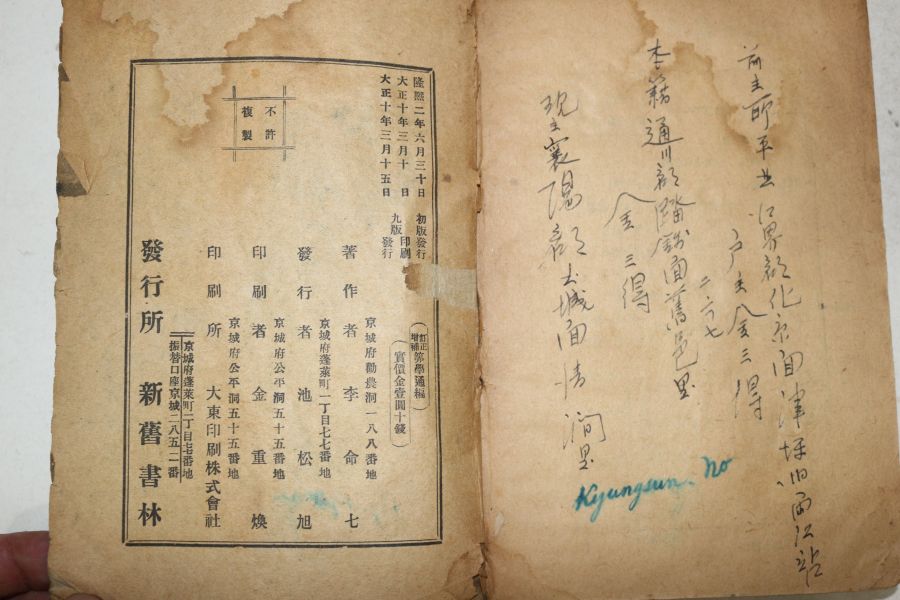 戶主金三得
本籍通川郡踏錢面舊邑里
二六七
金三得
襄陽郡土城面淸澗里
Kyungsun. No
隆熙二年六月三十日 初版發行
大正十年三月十日 印刷
大正十年三月十五日 九版發行
不許
複製
訂正增補 算學通編
實價金壹圓十錢
京城府勸農洞一八八番地
著作者 李命七
京城府蓬萊町一丁目七七番地
發行者 池松旭
京城府公平洞五十五番地
印刷者 金重煥
京城府公平洞五十五番地
印刷所 大東印刷株式會社
京城府蓬萊町一丁目七七番地
振替口座京城二八五二番
發行所 新舊書林